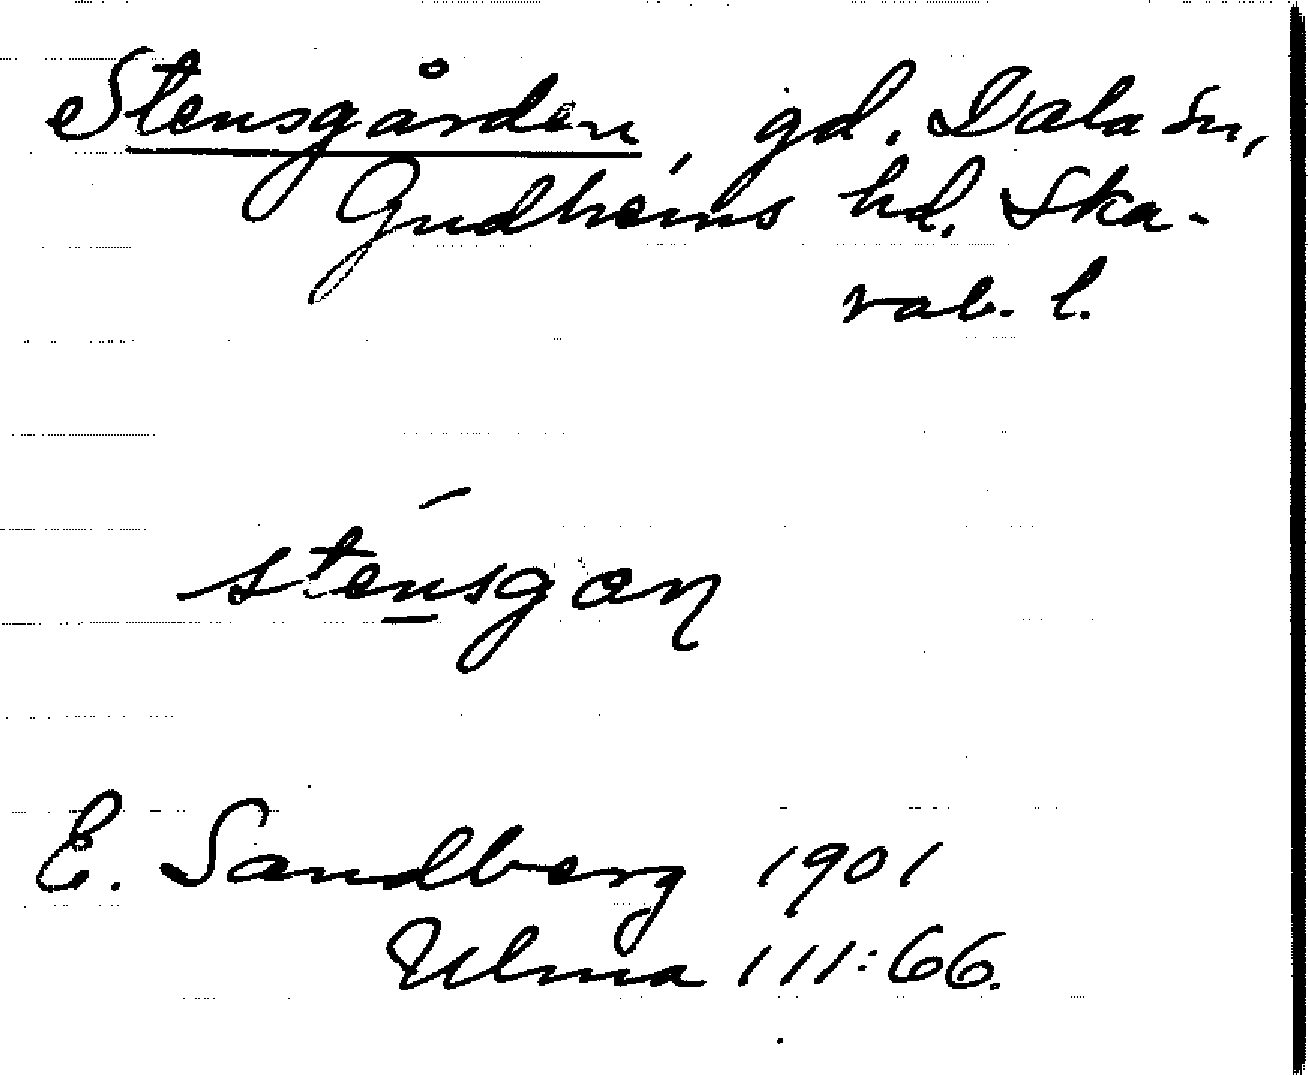 Stensgården, gd. Dala sn,
Gudhems hd. Ska-
rab. l.
stensgaɳ
E. Sandberg 1901
Ulma 111:66.